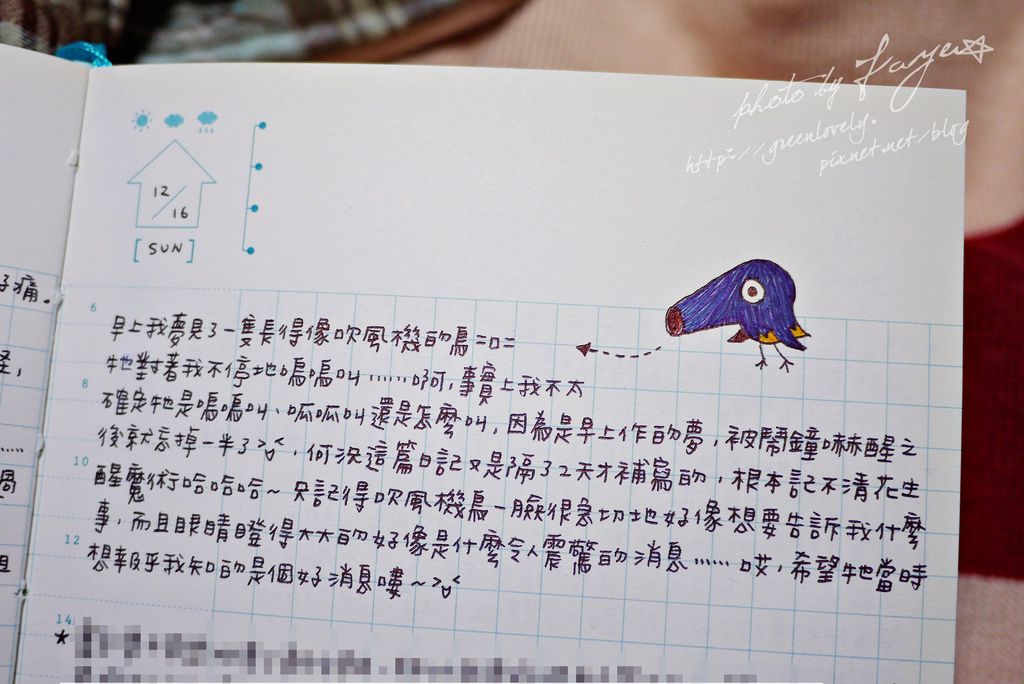 photo by Faye☆
http://greenlovely.
pixnet.net/blog
12/16
[SUN]
好痛。
6
早上我夢見了一隻長得像吹風機的鳥=口=
牠對著我不停地嗚嗚叫……啊,事實上我不太
8
確定牠是嗚嗚叫、呱呱叫還是怎麼叫,因為是早上作的夢,被鬧鐘嚇醒之
後就忘掉一半了>"<,何況這篇日記又是隔了2天才補寫的,根本記不清花生
10
醒魔術哈哈哈~只記得吹風機鳥一臉很急切地好像想要告訴我什麼
事,而且眼睛瞪得大大的好像是什麼令人震驚的消息……哎,希望牠當時
12
想報乎我知的是個好消息嘍~>"<
14
★